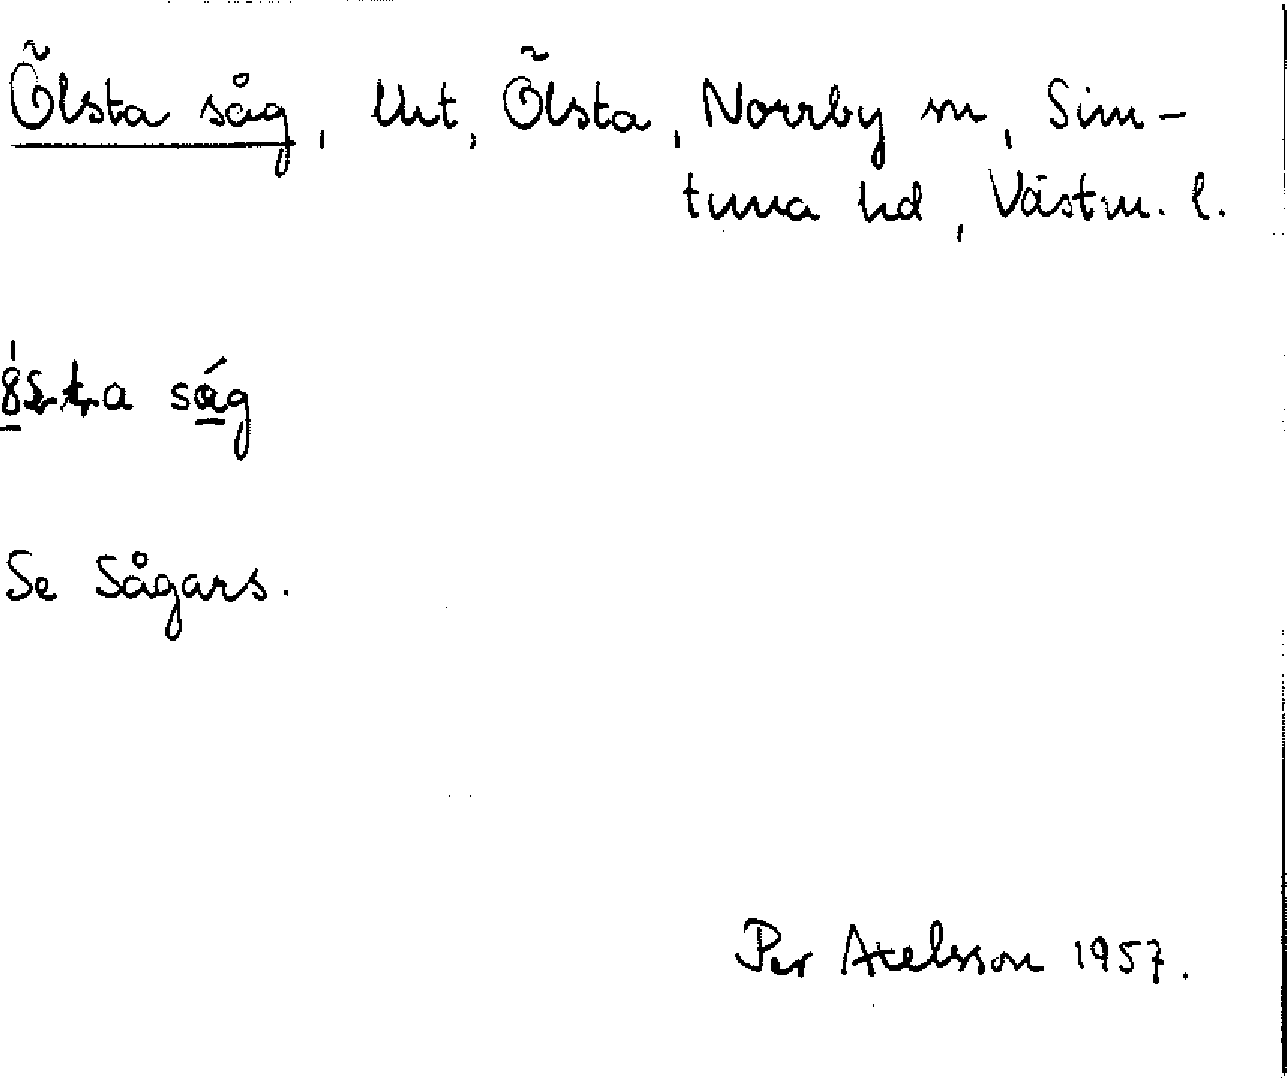 Ölsta såg, lht, Ölsta, Norrby sn, Sim-
tuna hd, Västm. l.
såg
Se Sågars.
Per Axelsson 1957.